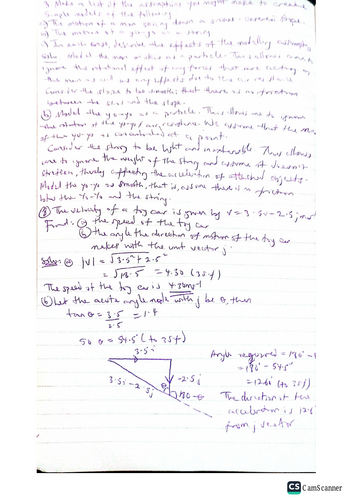 3. Make a list of the assumptions you might make to create
simple models of the following
a) The motion of a man skiing down a snow-covered slope.
b) The motion of a yo-yo on a string
In each case, describe the effects of the modelling assumptions
Soln: Model the man on skis as a particle. This allows me to
ignore the rotational effect of any forces that are acting on
the man as well as any effects due to the air resistance
Consider the slope to be smooth that is there is no friction
between the skis and the slope.
(b) Model the yo-yo as a particle. This allows me to ignore
the rotation of the yo-yo & air resistance. Will assume that the mass
of the yo-yo is concentrated at a point.
Consider the string to be light and inextensible. This allows
me to ignore the weight of the string and assume it doesn't
stretch, thereby affecting the acceleration of attached objects.
Model the yo-yo as smooth, that is, assume there is no friction
b/w the Yo-Yo and the string.
The velocity of a toy car is given by V = 3.5i - 2.5j ms-1
Find: (a) the speed of the toy car
(b) the angle the direction of motion of the toy car
makes with the unit vector j.
Soln: (a) |V| = √3.5² + 2.5²
= √18.5 = 4.30 (3sf)
The speed of the toy car is 4.30ms-1
(b) Let the acute angle made with j be θ, then
tan θ = 3.5 = 1.4
2.5
So θ = 54.5° (to 3sf)
3.5i
3.5i - 2.5j
-2.5j
θ
180-θ
Angle required = 180 - θ
= 180° - 54.5°
= 126° (to 3sf)
The direction of the
acceleration is 126
from j vector
CS CamScanner